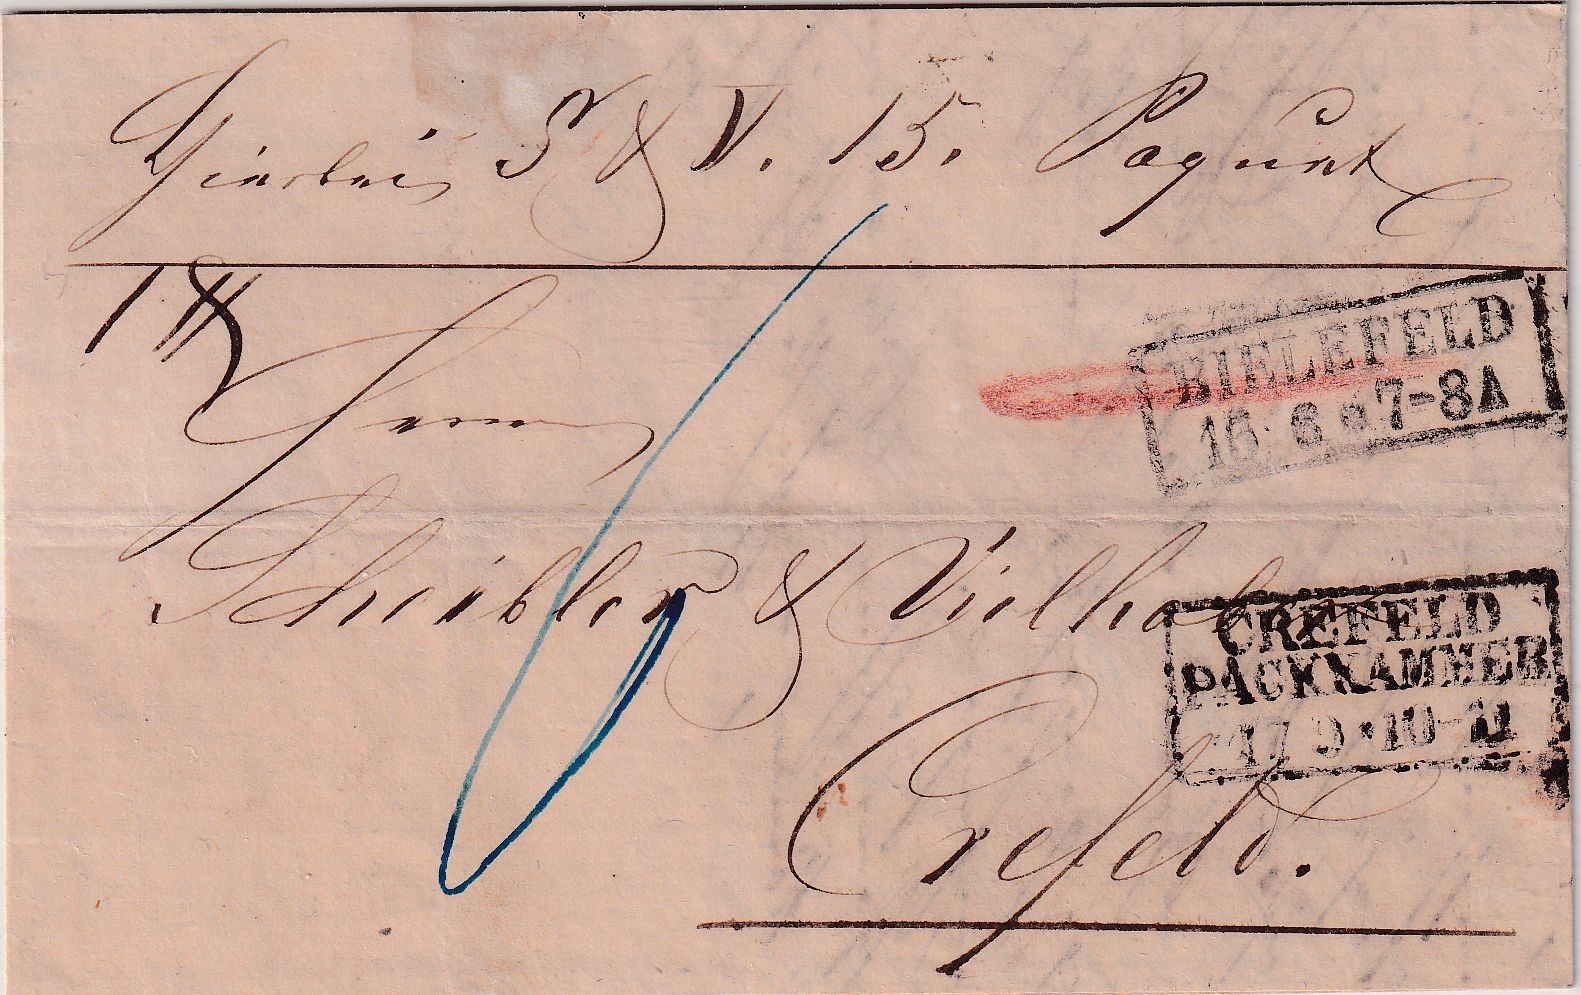 Hierbei S & V. 15. Paquet
1 ℔
Herrn
BIELEFELD
15 6 * 7-8 A
Scheibler & Vielhaber
CREFELD
PACKKAMMER
17 9 * 10-11
Crefeld.